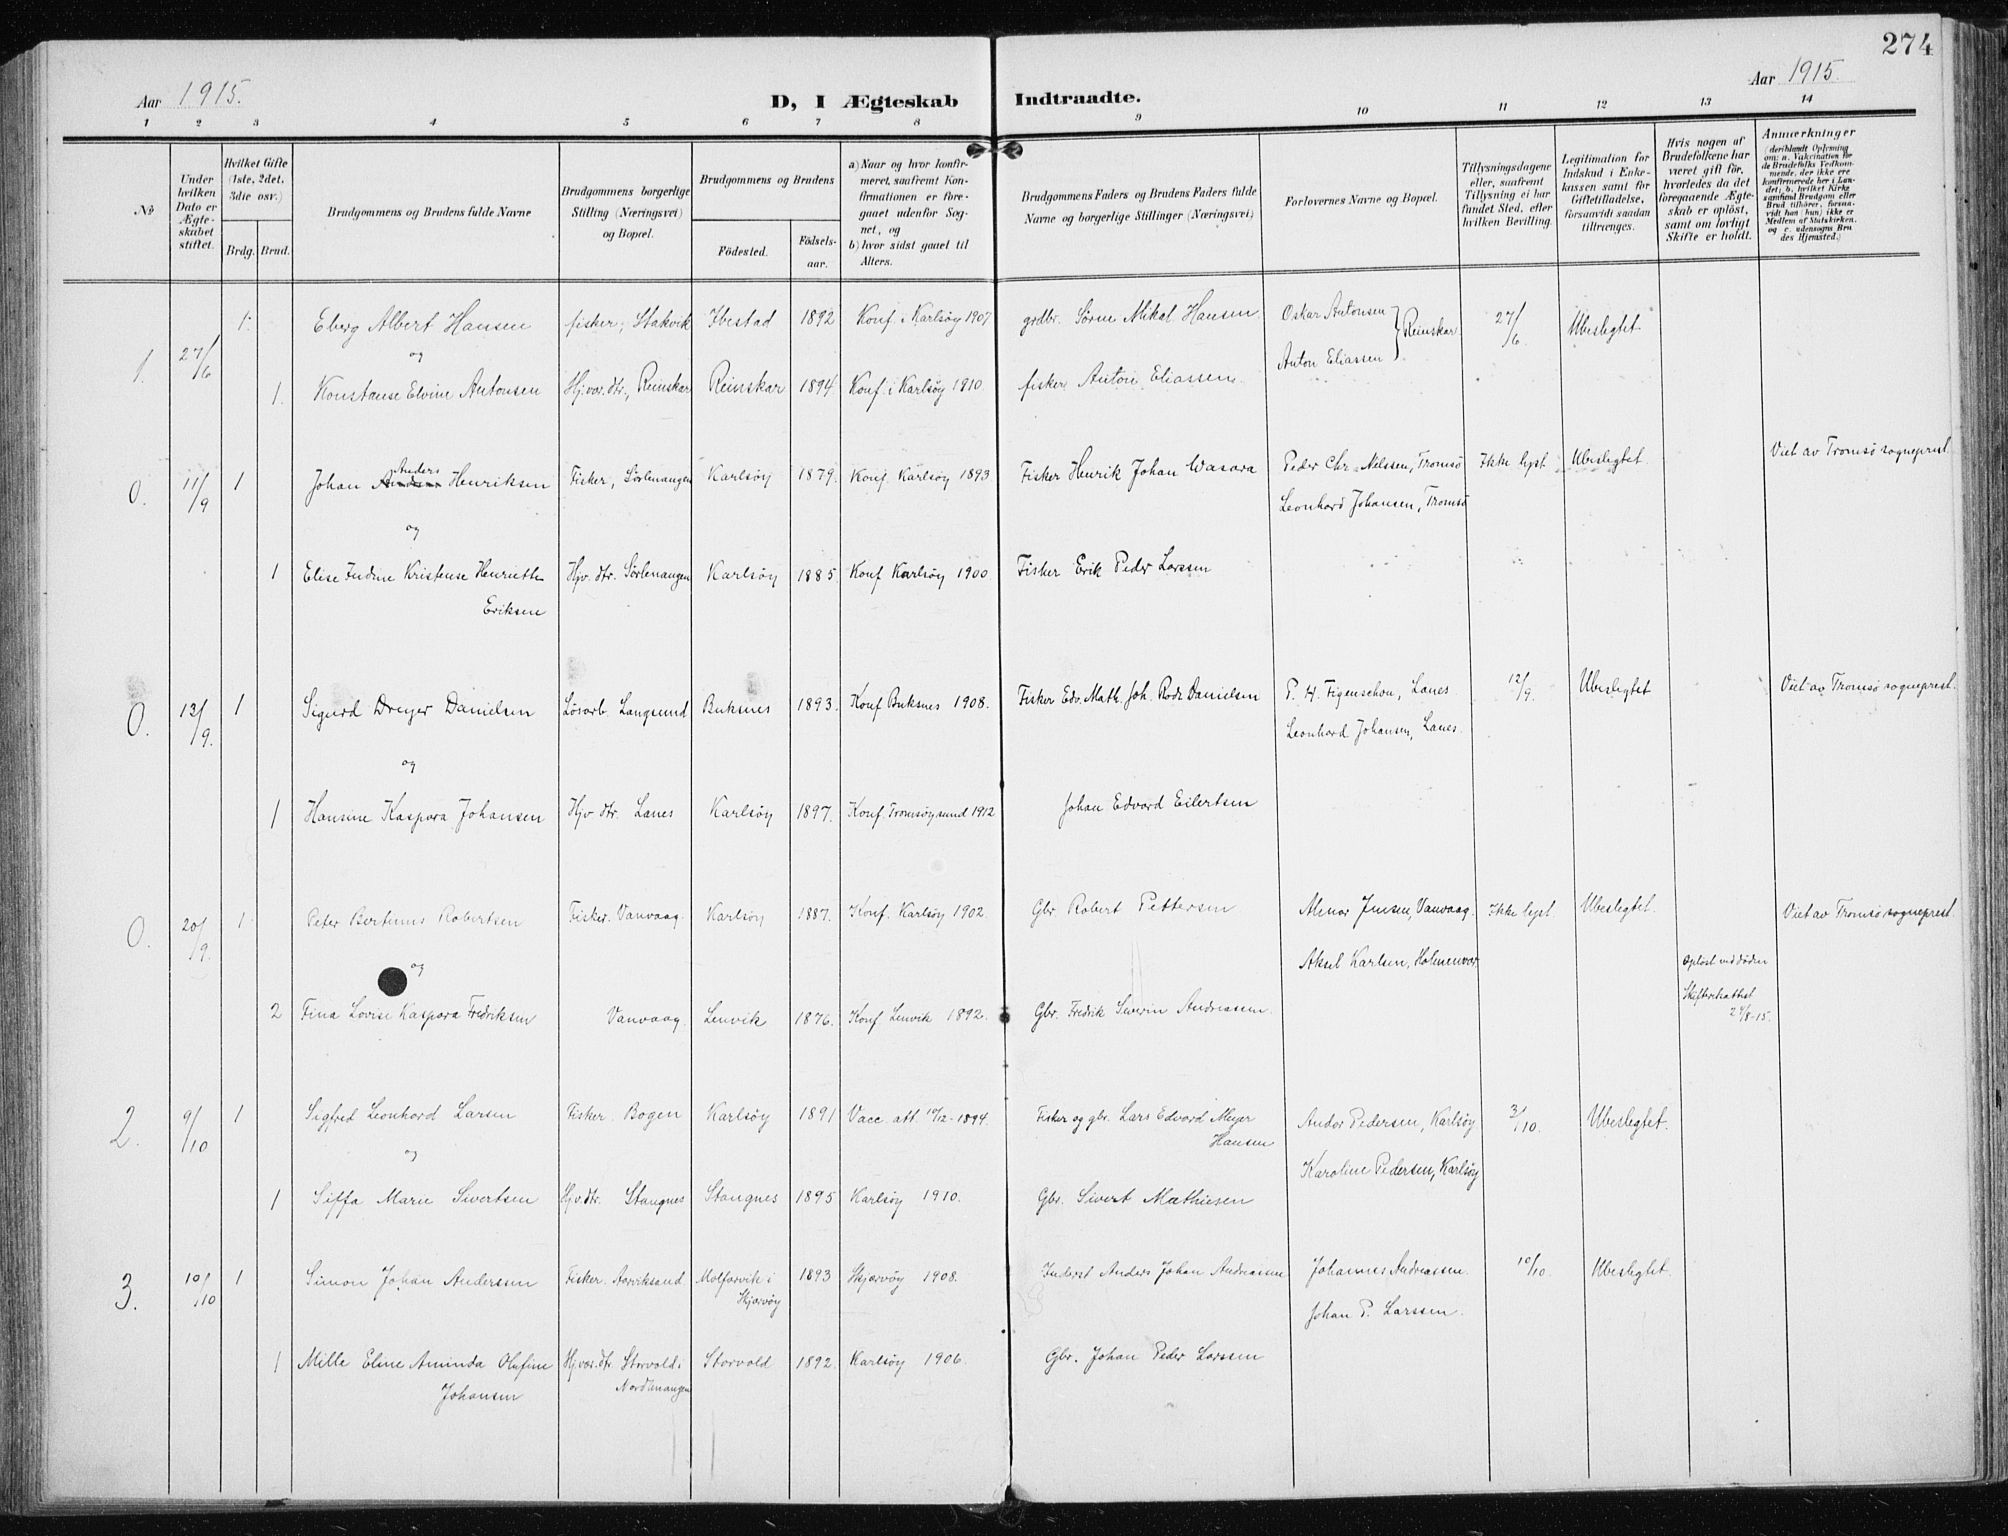 274
Aar 1915.
D, I Ægteskab Indtraadte.
Aar 1915.
1 2 3 4 5 6 7 8 9 10 11 12 13 14
No
Under hvilken Dato er Ægteskabet stiftet.
Hvilket Gifte (1ste, 2det, 3die osv.)
Brdg. Brud.
Brudgommens og Brudens fulde Navne
Brudgommens borgerlige Stilling (Næringsvei) og Bopæl.
Brudgommens og Brudens
Födested.
Födsels-aar.
a) Naar og hvor konfirmeret, saafremt Konfirmationen er foregaaet udenfor Sognet, og
b) hvor sidst gaaet til Alters.
Brudgommens Faders og Brudens Faders fulde Navne og borgerlige Stillinger (Næringsvei)
Forlovernes Navne og Bopæl.
Tillysningsdagene eller, saafremt Tillysning ei har fundet Sted, efter hvilken Bevilling.
Legitimation for Indskud i Enkekassen samt for Giftetilladelse, forsaavidt saadan tiltrænges.
Hvis nogen af Brudefolkene har været gift för, hvorledes da det foregaaende Ægteskab er oplöst, samt om lovligt Skifte er holdt.
Anmærkninger (deriblandt Oplysning om: a. Vakcination for de Brudefolks Vedkommende, der ikke ere konfirmerede her i Landet; b. hvilket Kirkesamfund Brudgom eller Brud tilhörer, forsaavidt han (hun) ikke er Medlem af Statskirken, og c. udensogns Brudes Hjemsted.)
1. 27/6 1. Eberg Albert Hansen fisker, Stakvik Ibestad 1892 Konf. i Karlsöy 1907 grdbr. Sörne Mikal Hansen Oskar Antonsen } Reinskar 27/6 Ubeslegtet
og
1. Konstanse Elvine Antonsen Hj.vær. dtr., Reinskar Reinskar 1894 Konf. i Karlsöy 1910. fisker Anton Eliassen. Anton Eliassen
0. 11/9 1 Johan Anders Henriksen Fisker, Sörlenangen Karlsöy 1879. Konf. Karlsöy 1893 Fisker Henrik Johan Wasara Peder Chr. Nelssen, Tromsö Ikke lyst. Ubeslegtet Viet av Tromsö sogneprest.
Leonhard Johansen, Tromsö
og
1 Elise Indine Kristense Henriette Hjv. dtr. Sörlenangen Karlsöy 1885. Konf Karlsöy 1900 Fisker Erik Peder Larssen
Eriksen
0. 13/9. 1 Sigurd Dreyer Danielsen Lösarb. Langsund Buksnes 1893. Konf Buksnes 1908. Fisker Edv. Math. Joh. Rode Danielsen P. H. Figenschou, Lanes. 12/9. Ubeslegtet Viet av Tromsö sogneprest.
Leonhard Johansen, Lanes.
og
1 Hansine Kaspara Johansen Hjv dtr. Lanes Karlsöy 1897. Konf. Tromsöysund 1912 Johan Edvard Eilertsen
0. 20/9. 1 Peter Bertinus Robertsen Fisker. Vanvaag. Karlsöy 1887. Konf. Karlsöy 1902. Gbr. Robert Pettersen Almar Jensen, Vanvaag. Ikke lyst. Ubeslegtet. Viet av Tromsö sogneprest.
og Aksel Karlsen, Holmenvær. Oplöst ved döden
2 Fina Lovise Kaspara Fredriksen Vanvaag. Lenvik 1876. Konf. Lenvik 1892. Gbr. Fredrik Severin Andreassen. Skifteretsattest
27/8-15.
2. 9/10 1 Sigfred Leonhard Larsen Fisker. Bogen Karlsöy 1891 Vacc. att. 10/12-1894. Fisker og gbr. Lars Edvard Meyer Hansen Andor Pedersen, Karlsöy 3/10. Ubeslegtet.
og Karoline Pedersen, Karlsöy
1 Siffa Marie Sivertsen Hj.v.dtr. Stangnes Stangnes 1895 Karlsöy 1910. Gbr. Sivert Mathiesen
3. 10/10 1 Simon Johan Anderssen Fisker. Aarviksand Molfarvik i Skjærvöy 1893 Skjærvöy 1908. Inderst Anders Johan Andreassen Johannes Andreassen. 10/10. Ubeslegtet.
Johan P. Larssen.
1 Mille Eline Aminda Olufine Hj.vær.dtr. Storvold i Storvold 1892. Karlsöy 1906. Gbr. Johan Peder Larssen
Johansen Nordlenangen